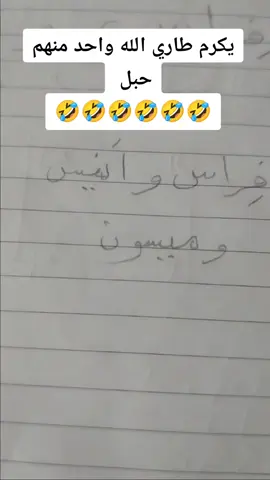 يكرم طاري الله واحد منهم
حبل
🤣🤣🤣🤣🤣🤣
فِراس و أنفيس
و ميسون